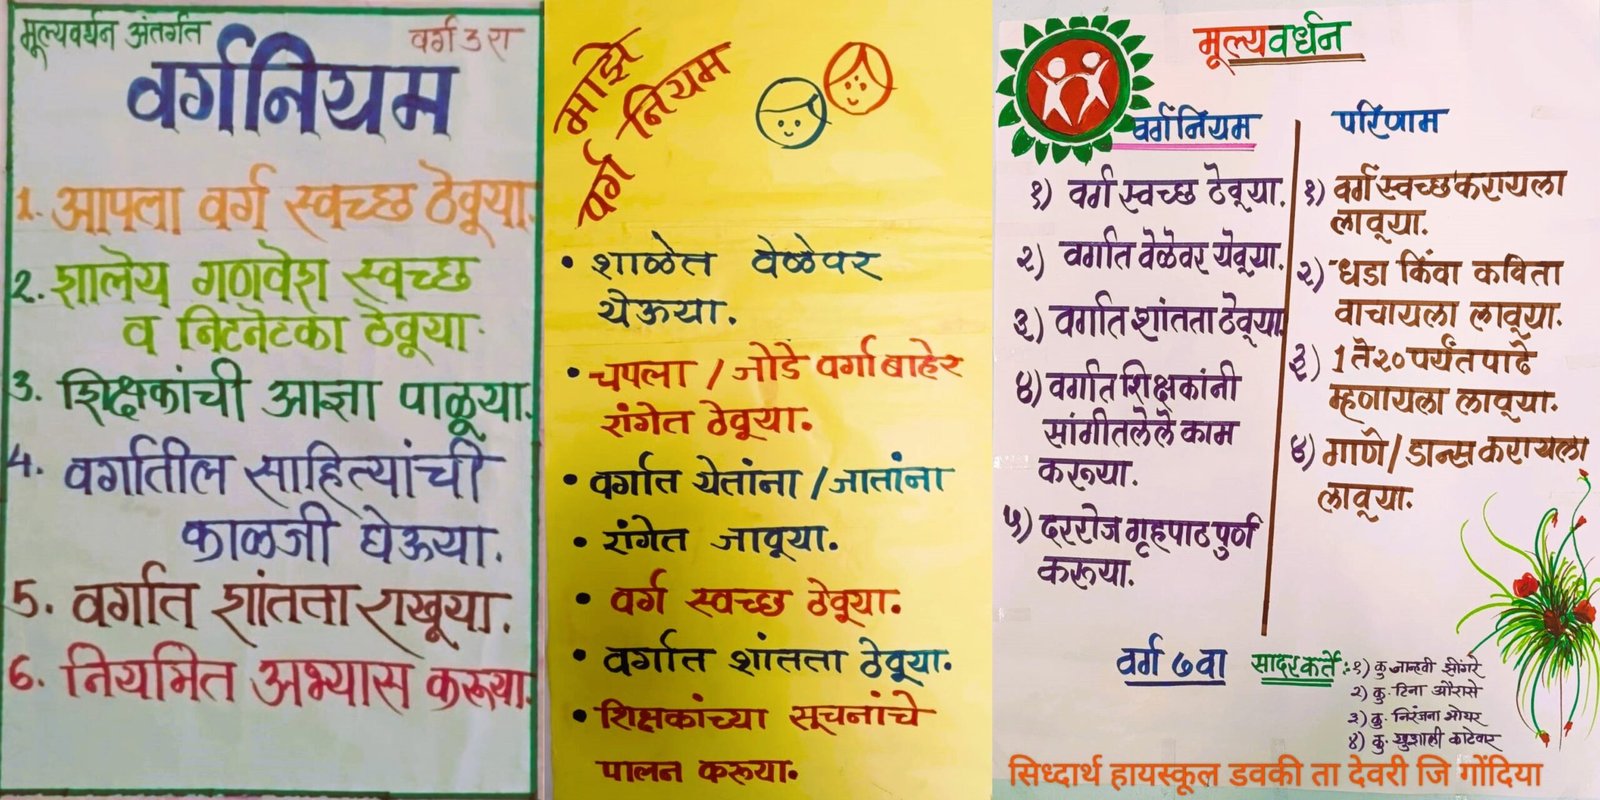 मूल्यवर्धन अंतर्गत
वर्ग 3 रा
वर्गनियम
1. आपला वर्ग स्वच्छ ठेवूया.
2. शालेय गणवेश स्वच्छ
व निटनेटका ठेवूया.
3. शिक्षकांची आज्ञा पाळूया.
4. वर्गातील साहित्यांची
काळजी घेऊया.
5. वर्गात शांतता राखूया.
6. नियमित अभ्यास करूया.
माझे
वर्ग नियम
• शाळेत वेळेवर
येऊया.
• चपला / जोडे वर्गाबाहेर
रांगेत ठेवूया.
• वर्गात येतांना / जातांना
• रांगेत जावूया.
• वर्ग स्वच्छ ठेवूया.
• वर्गात शांतता ठेवूया.
• शिक्षकांच्या सूचनांचे
पालन करूया.
मूल्यवर्धन
वर्गनियम
१) वर्ग स्वच्छ ठेवूया.
२) वर्गात वेळेवर येवूया.
३) वर्गात शांतता ठेवूया
४) वर्गात शिक्षकांनी
सांगीतलेले काम
करूया.
५) दररोज गृहपाठ पुर्ण
करूया.
परिणाम
१) वर्ग स्वच्छ करायला
लावूया.
२) धडा किंवा कविता
वाचायला लावूया.
३) 1 ते 20 पर्यंत पाढे
म्हणायला लावूया.
४) गाणे / डान्स करायला
लावूया.
वर्ग ७ वा
सादरकर्ते :- १) कु. जान्हवी झींगरे
२) कु. टिना औरासे
३) कु. निरंजना भोयर
४) कु. खुशाली काटेवार
सिध्दार्थ हायस्कूल डवकी ता देवरी जि गोंदिया